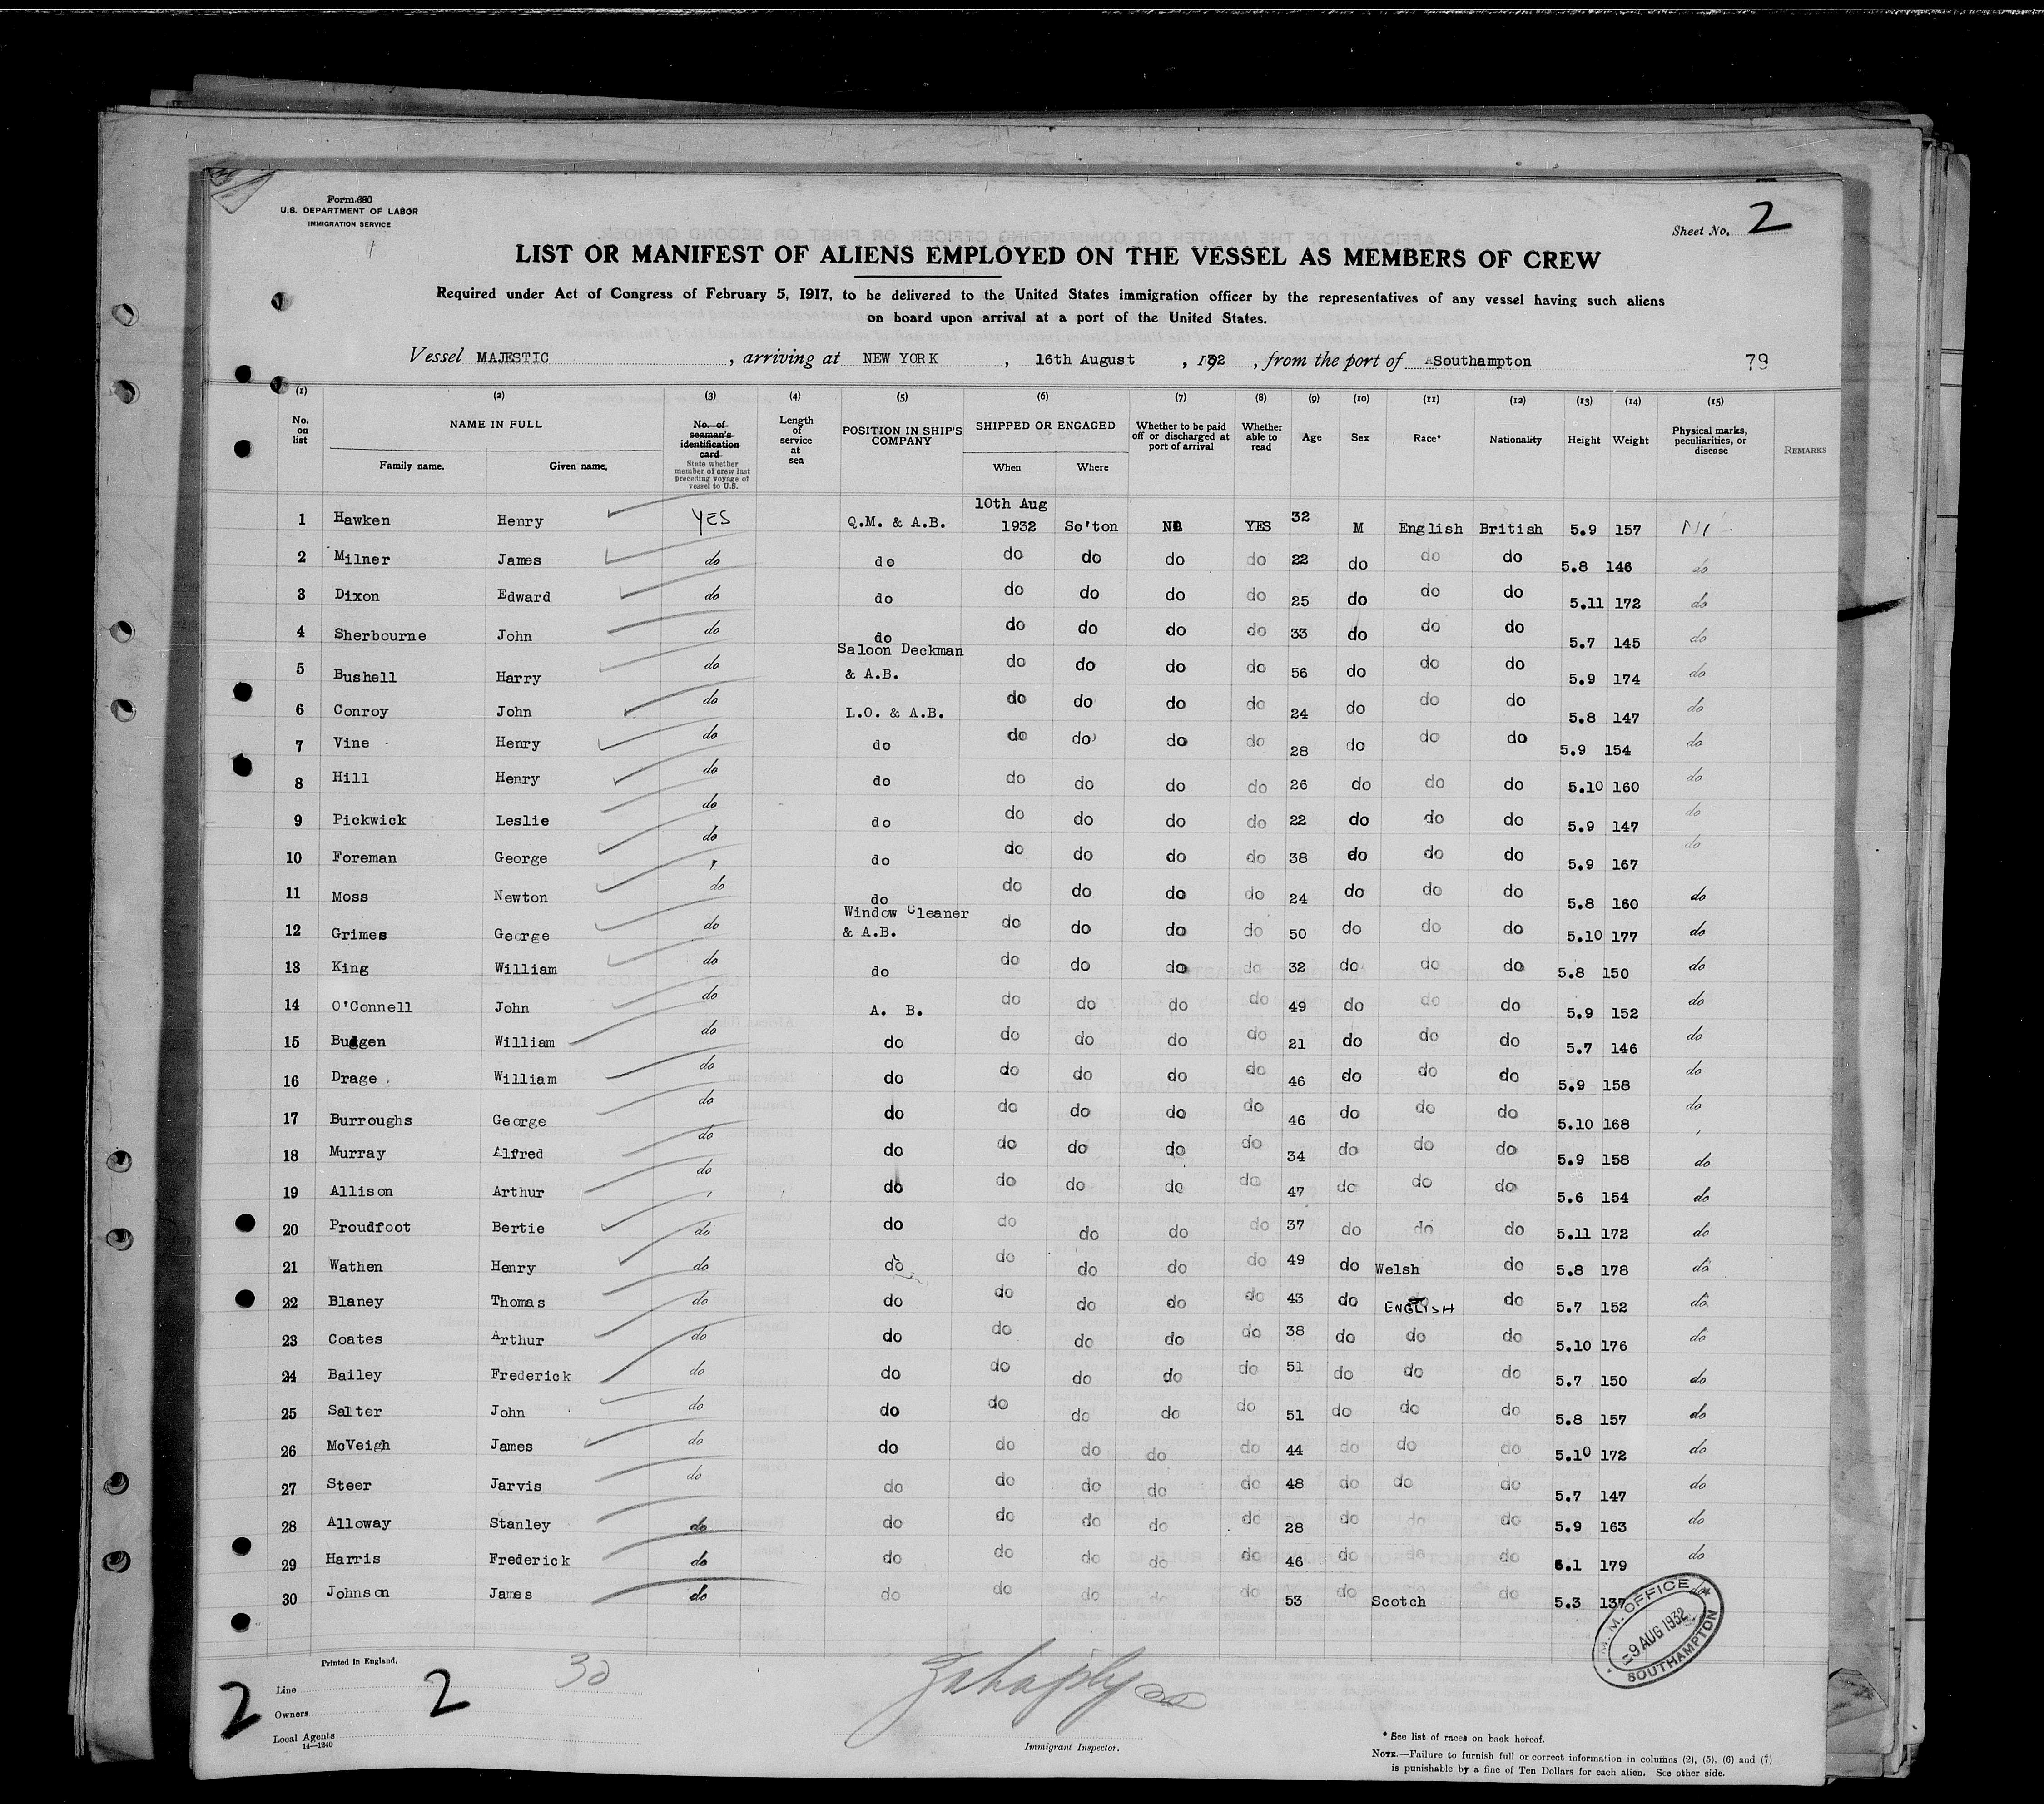 Form 680
U.S. DEPARTMENT OF LABOR
IMMIGRATION SERVICE
Sheet No. 2
LIST OR MANIFEST OF ALIENS EMPLOYED ON THE VESSEL AS MEMBERS OF CREW
Required under Act of Congress of February 5, 1917, to be delivered to the United States immigration officer by the representatives of any vessel having such aliens
on board upon arrival at a port of the United States.
Vessel MAJESTIC, arriving at NEW YORK, 16th August, 1932, from the port of Southampton 79
(1) (2) (3) (4) (5) (6) (7) (8) (9) (10) (11) (12) (13) (14) (15)
No. on list NAME IN FULL Family name. Given name. No. of seaman's identification card State whether member of crew last preceding voyage of vessel to U.S. Length of service at sea POSITION IN SHIP'S COMPANY SHIPPED OR ENGAGED When Where Whether to be paid off or discharged at port of arrival Whether able to read Age Sex Race* Nationality Height Weight Physical marks, peculiarities, or disease REMARKS
1 Hawken Henry YES Q.M. & A.B. 10th Aug 1932 So'ton NO YES 32 M English British 5.9 157 Nil
2 Milner James do do do do do do 22 do do do 5.8 146 do
3 Dixon Edward do do do do do do 25 do do do 5.11 172 do
4 Sherbourne John do do do do do do 33 do do do 5.7 145 do
5 Bushell Harry do Saloon Deckman & A.B. do do do do 56 do do do 5.9 174 do
6 Conroy John do L.O. & A.B. do do do do 24 do do do 5.8 147 do
7 Vine Henry do do do do do do 28 do do do 5.9 154 do
8 Hill Henry do do do do do do 26 do do do 5.10 160 do
9 Pickwick Leslie do do do do do do 22 do do do 5.9 147 do
10 Foreman George do do do do do do 38 do do do 5.9 167 do
11 Moss Newton do do do do do do 24 do do do 5.8 160 do
12 Grimes George do Window Cleaner & A.B. do do do do 50 do do do 5.10 177 do
13 King William do do do do do do 32 do do do 5.8 150 do
14 O'Connell John do A. B. do do do do 49 do do do 5.9 152 do
15 Budgen William do do do do do do 21 do do do 5.7 146 do
16 Drage William do do do do do do 46 do do do 5.9 158 do
17 Burroughs George do do do do do do 46 do do do 5.10 168 do
18 Murray Alfred do do do do do do 34 do do do 5.9 158 do
19 Allison Arthur do do do do do do 47 do do do 5.6 154 do
20 Proudfoot Bertie do do do do do do 37 do do do 5.11 172 do
21 Wathen Henry do do do do do do 49 do Welsh do 5.8 178 do
22 Blaney Thomas do do do do do do 43 do ENGLISH do 5.7 152 do
23 Coates Arthur do do do do do do 38 do do do 5.10 176 do
24 Bailey Frederick do do do do do do 51 do do do 5.7 150 do
25 Salter John do do do do do do 51 do do do 5.8 157 do
26 McVeigh James do do do do do do 44 do do do 5.10 172 do
27 Steer Jarvis do do do do do do 48 do do do 5.7 147 do
28 Alloway Stanley do do do do do do 28 do do do 5.9 163 do
29 Harris Frederick do do do do do do 46 do do do 6.1 179 do
30 Johnson James do do do do do do 53 do Scotch do 5.3 137 do
M.M. OFFICE
9 AUG 1932
SOUTHAMPTON
Printed in England.
2 2 30
Line
Owners
Local Agents
14—1240
Immigrant Inspector.
*See list of races on back hereof.
NOTE.—Failure to furnish full or correct information in columns (2), (5), (6) and (7)
is punishable by a fine of Ten Dollars for each alien. See other side.